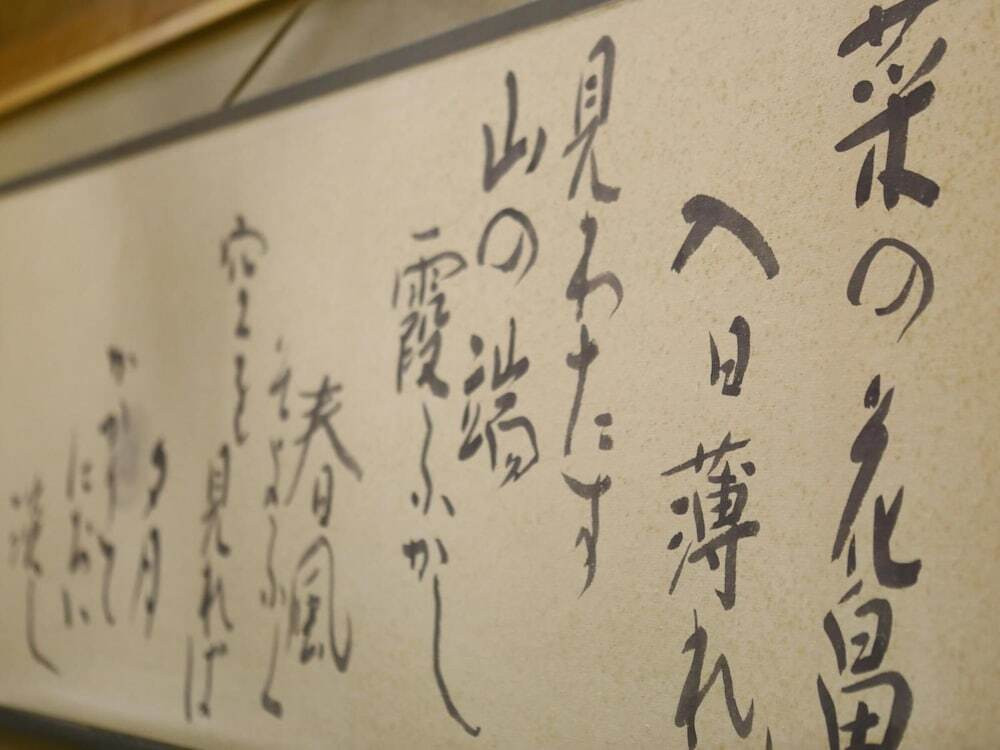 菜の花畠
入日薄れ
見わたす
山の端
霞ふかし
春風
そよふく
空を見れば
夕月
かかりて
にほひ
淡し